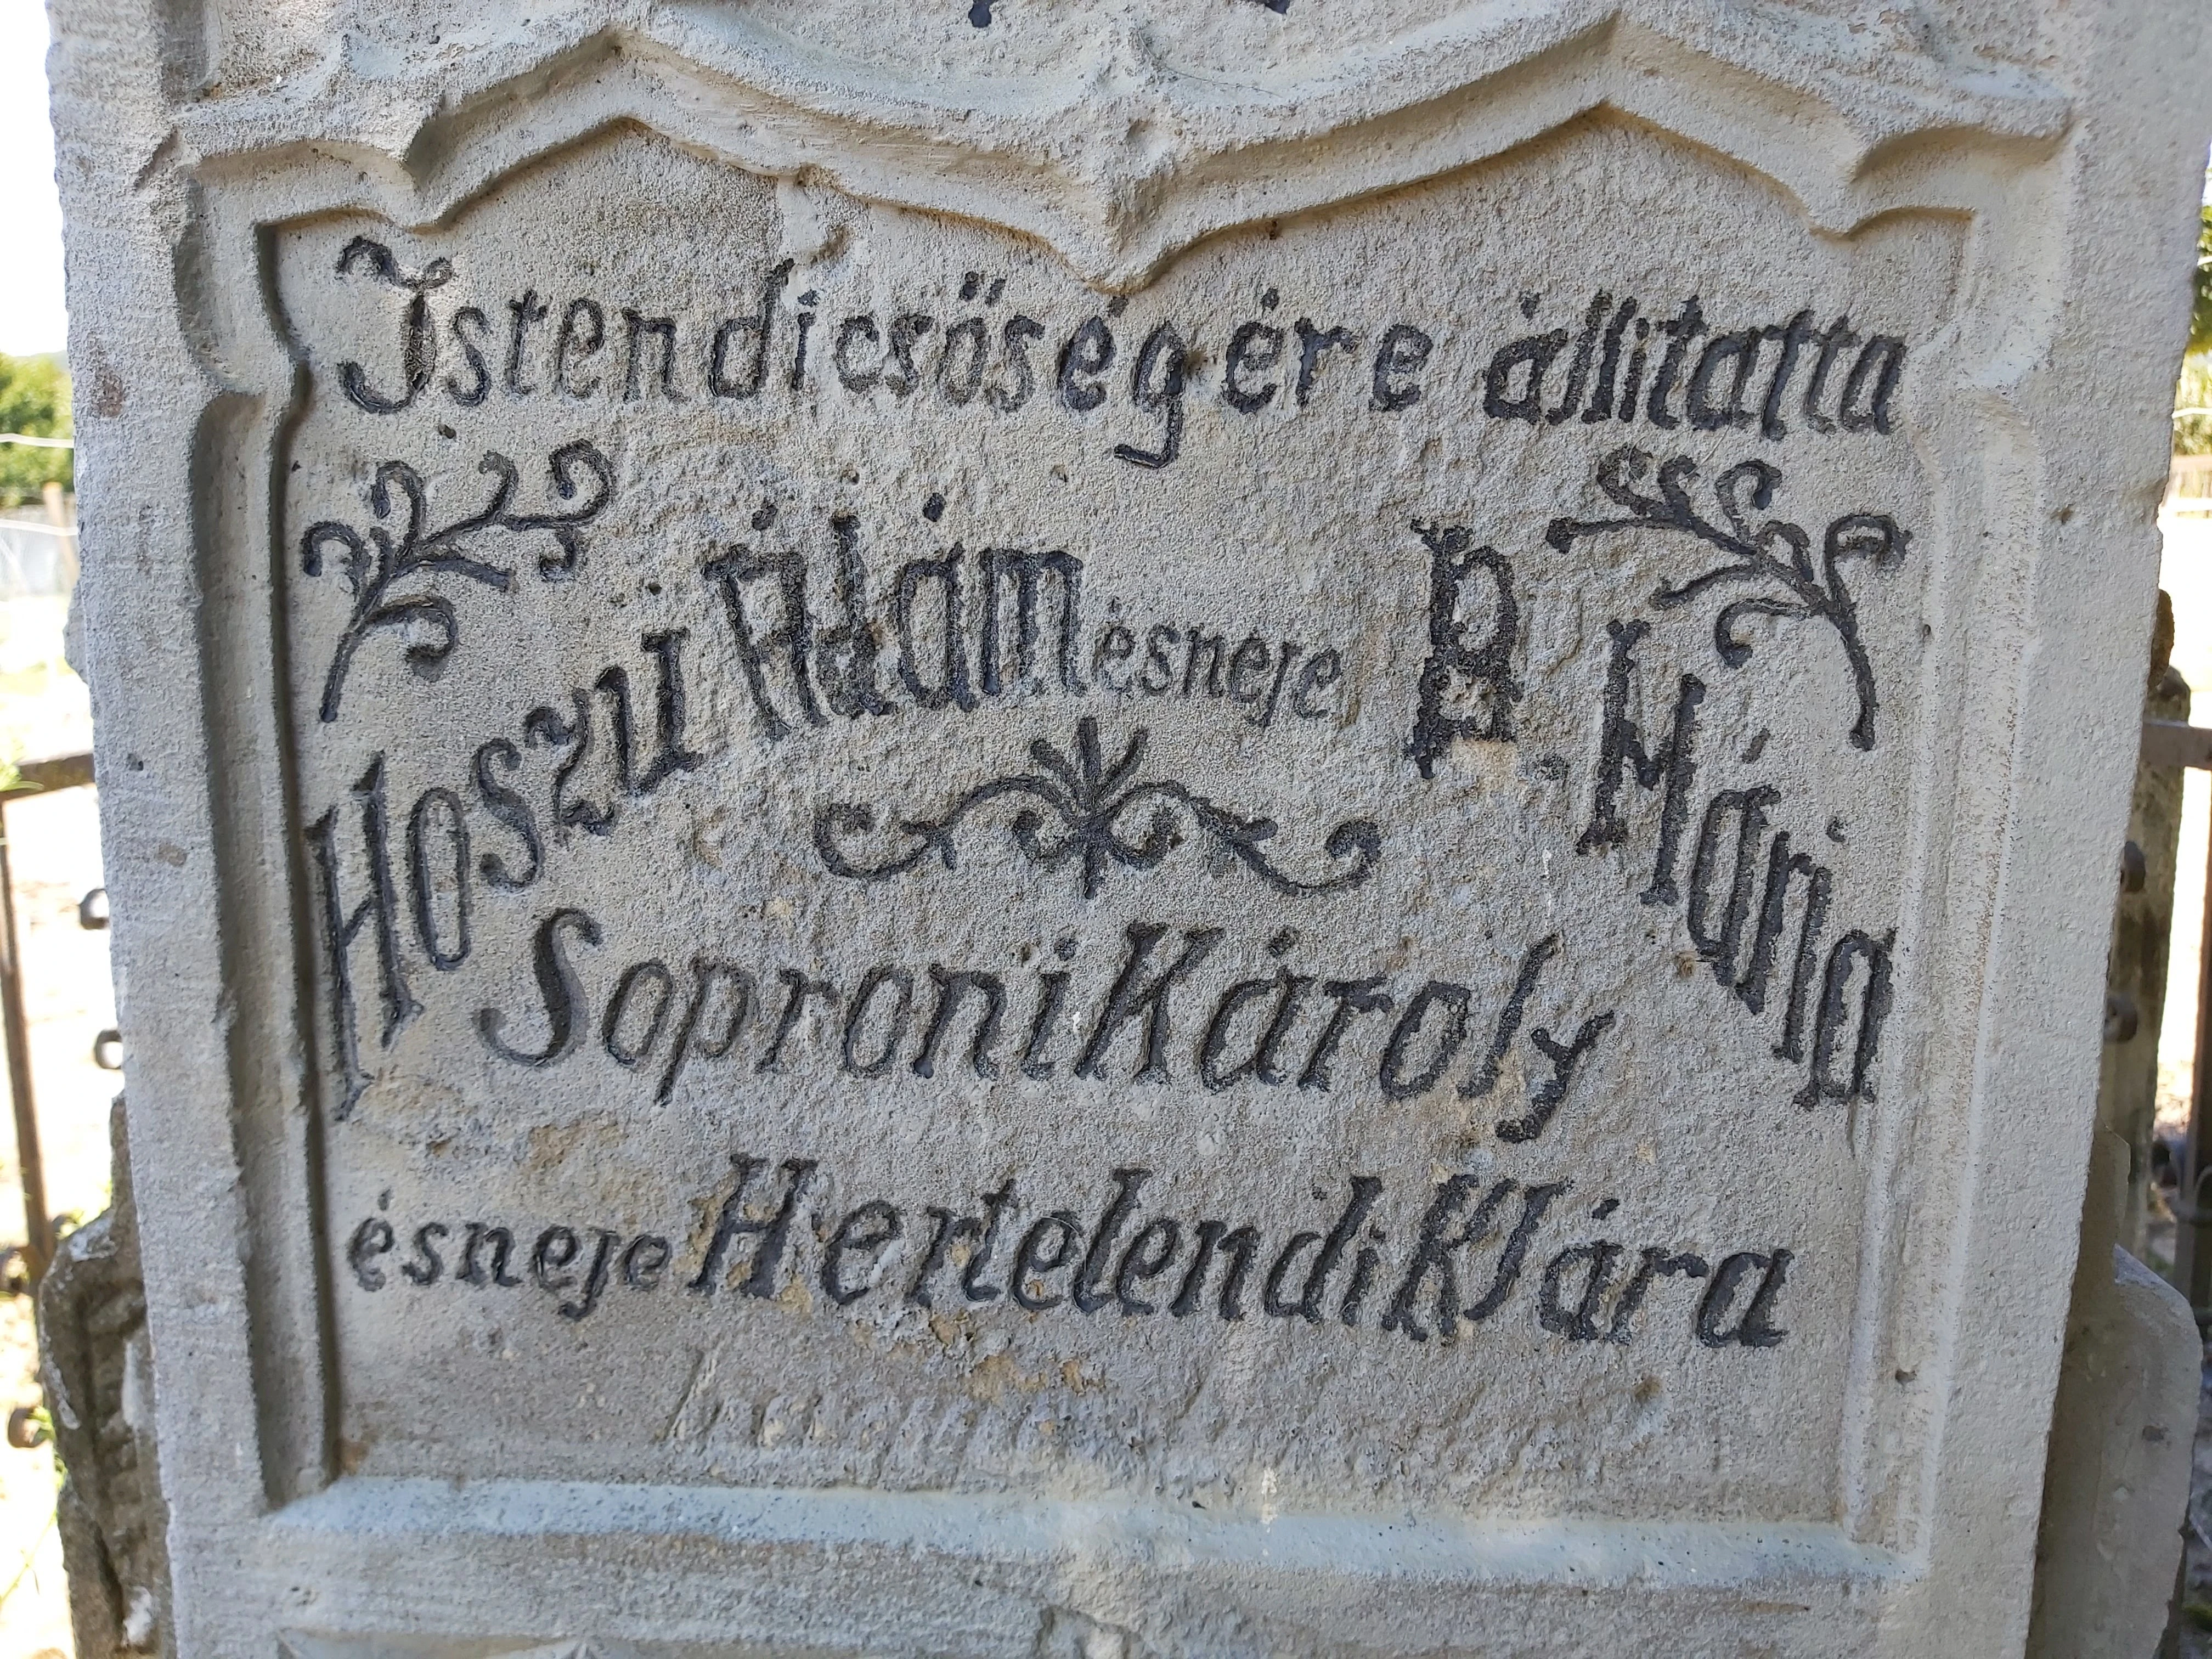 Isten dicsöségére àllitatta
Hoszu Ádám ésneje B. Mária
Soproni Károly
ésneje Hertelendi Klára